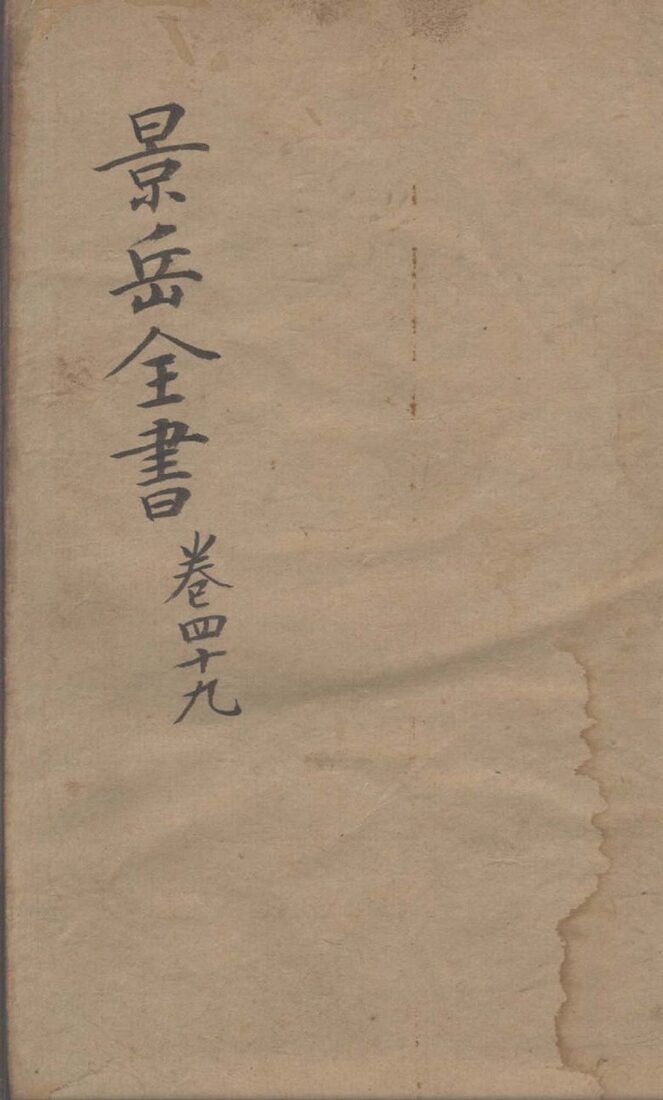 景岳全書
卷四十九